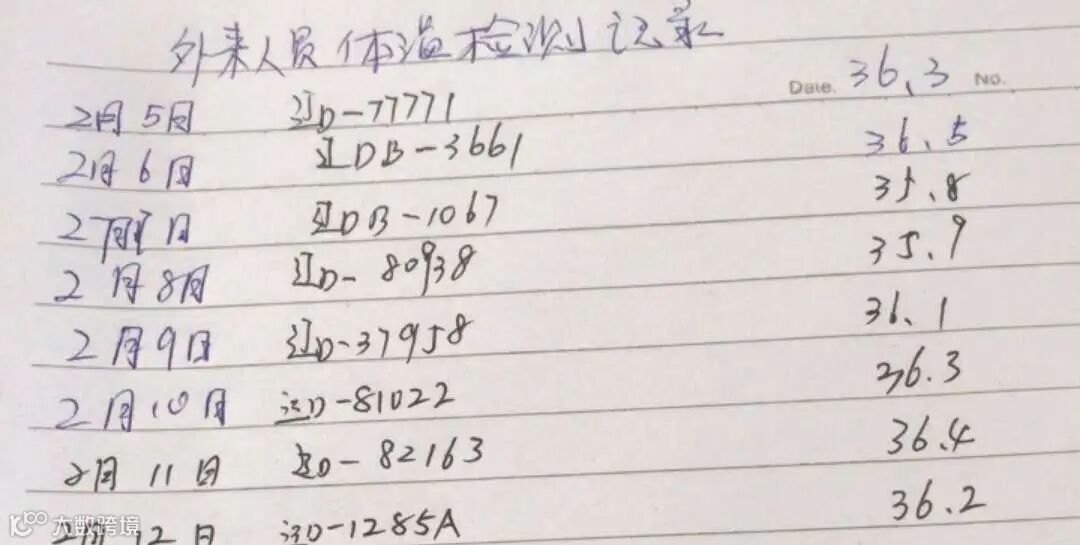 外来人员体温检测记录
Date. No.
2月5日 辽D-77771 36.3
2月6日 辽DB-3661 36.5
2月7日 辽DB-1067 35.8
2月8日 辽D-80938 35.9
2月9日 辽D-37958 36.1
2月10日 辽D-81022 36.3
2月11日 辽D-82163 36.4
2月12日 辽D-1285A 36.2
大数跨境